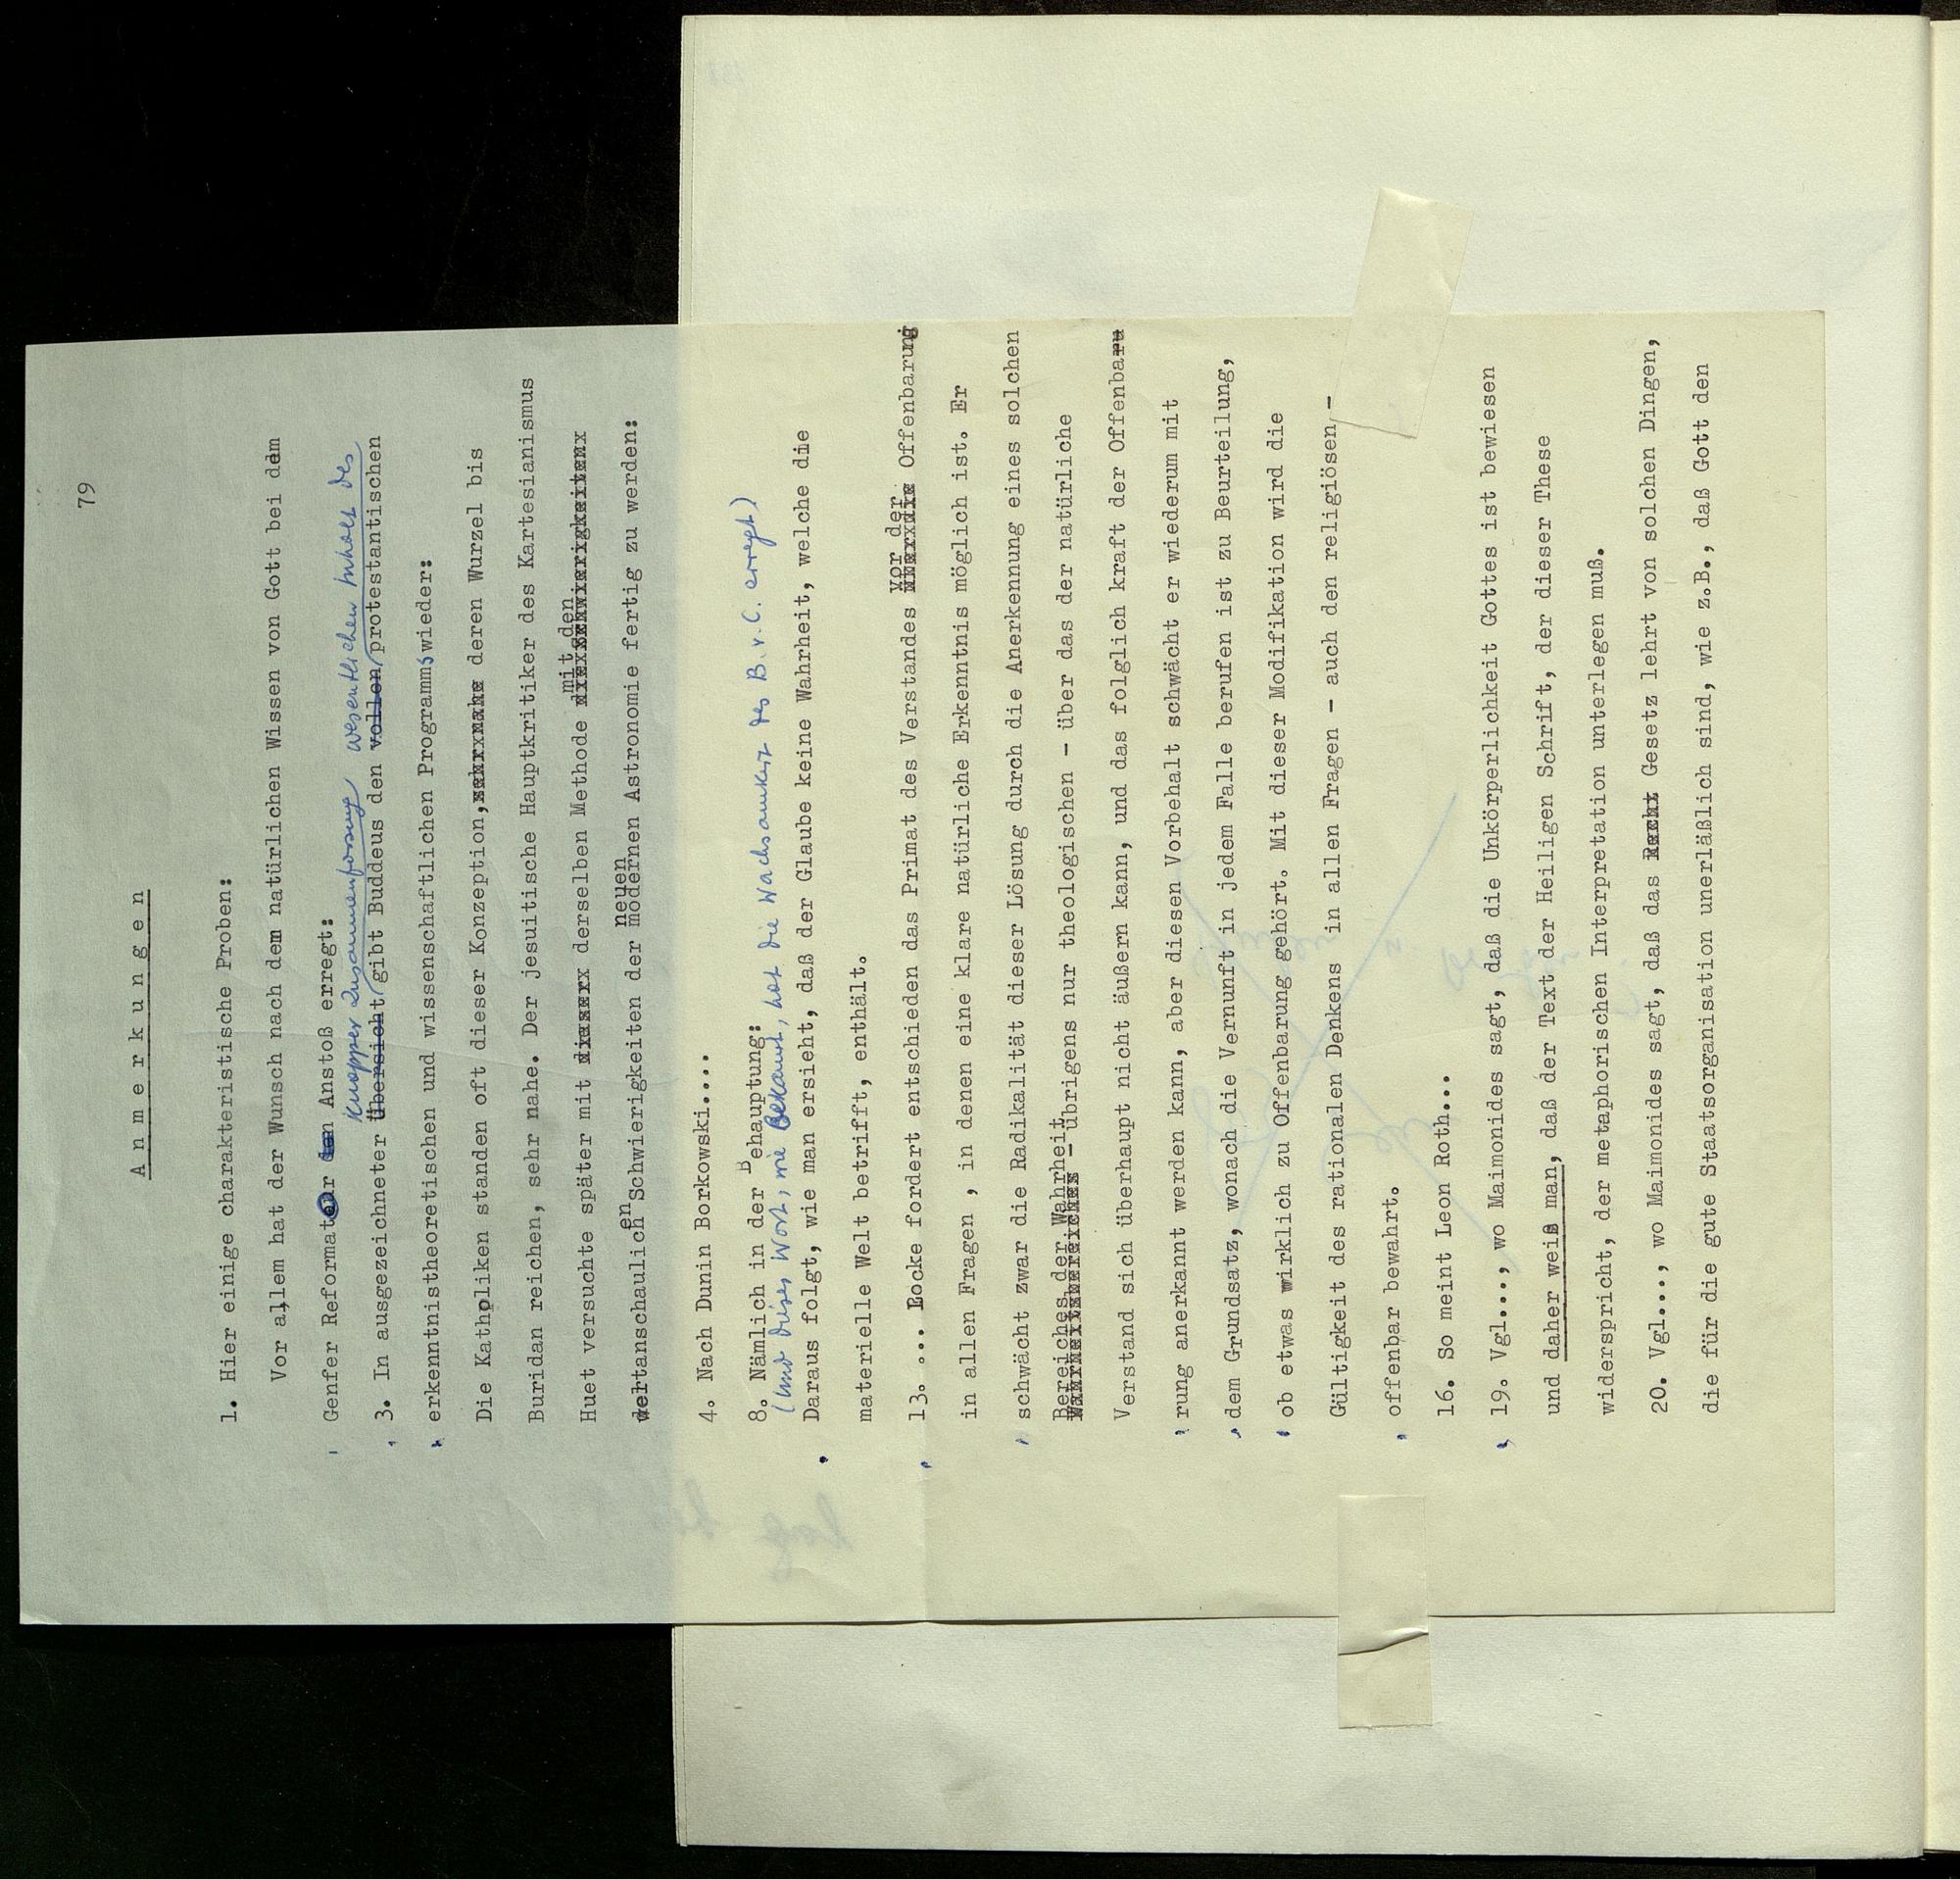 79
A n m e r k u n g e n
1. Hier einige charakteristische Proben:
Vor allem hat der Wunsch nach dem natürlichen Wissen von Gott bei dem
Genfer Reformator den Anstoß erregt:
knapper Zusammenfassung wesentlichen Inhalt des
3. In ausgezeichneter Übersicht gibt Buddeus den vollen protestantischen
erkenntnistheoretischen und wissenschaftlichen Programms wieder:
Die Katholiken standen oft dieser Konzeption, sehr nahe deren Wurzel bis
Buridan reichen, sehr nahe. Der jesuitische Hauptkritiker des Kartesianismus
mit den
Huet versuchte später mit dieser derselben Methode die Schwierigkeiten
en neuen
wertanschaulich Schwierigkeiten der modernen Astronomie fertig zu werden:
4. Nach Dunin Borkowski....
8. Nämlich in der Behauptung:
(und dieses Wort, wie bekannt, hat die Wachsamkeit des B.v.C. erregt)
Daraus folgt, wie man ersieht, daß der Glaube keine Wahrheit, welche die
materielle Welt betrifft, enthält.
vor der
13. ... Locke fordert entschieden das Primat des Verstandes über die Offenbarung
in allen Fragen , in denen eine klare natürliche Erkenntnis möglich ist. Er
schwächt zwar die Radikalität dieser Lösung durch die Anerkennung eines solchen
Bereiches der Wahrheit
Wahrheitsbereiches - übrigens nur theologischen - über das der natürliche
Verstand sich überhaupt nicht äußern kann, und das folglich kraft der Offenbaru
rung anerkannt werden kann, aber diesen Vorbehalt schwächt er wiederum mit
dem Grundsatz, wonach die Vernunft in jedem Falle berufen ist zu Beurteilung,
ob etwas wirklich zu Offenbarung gehört. Mit dieser Modifikation wird die
Gültigkeit des rationalen Denkens in allen Fragen - auch den religiösen,-
offenbar bewahrt.
16. So meint Leon Roth...
19. Vgl..., wo Maimonides sagt, daß die Unkörperlichkeit Gottes ist bewiesen
und daher weiß man, daß der Text der Heiligen Schrift, der dieser These
widerspricht, der metaphorischen Interpretation unterlegen muß.
20. Vgl..., wo Maimonides sagt, daß das Recht Gesetz lehrt von solchen Dingen,
die für die gute Staatsorganisation unerläßlich sind, wie z.B., daß Gott den